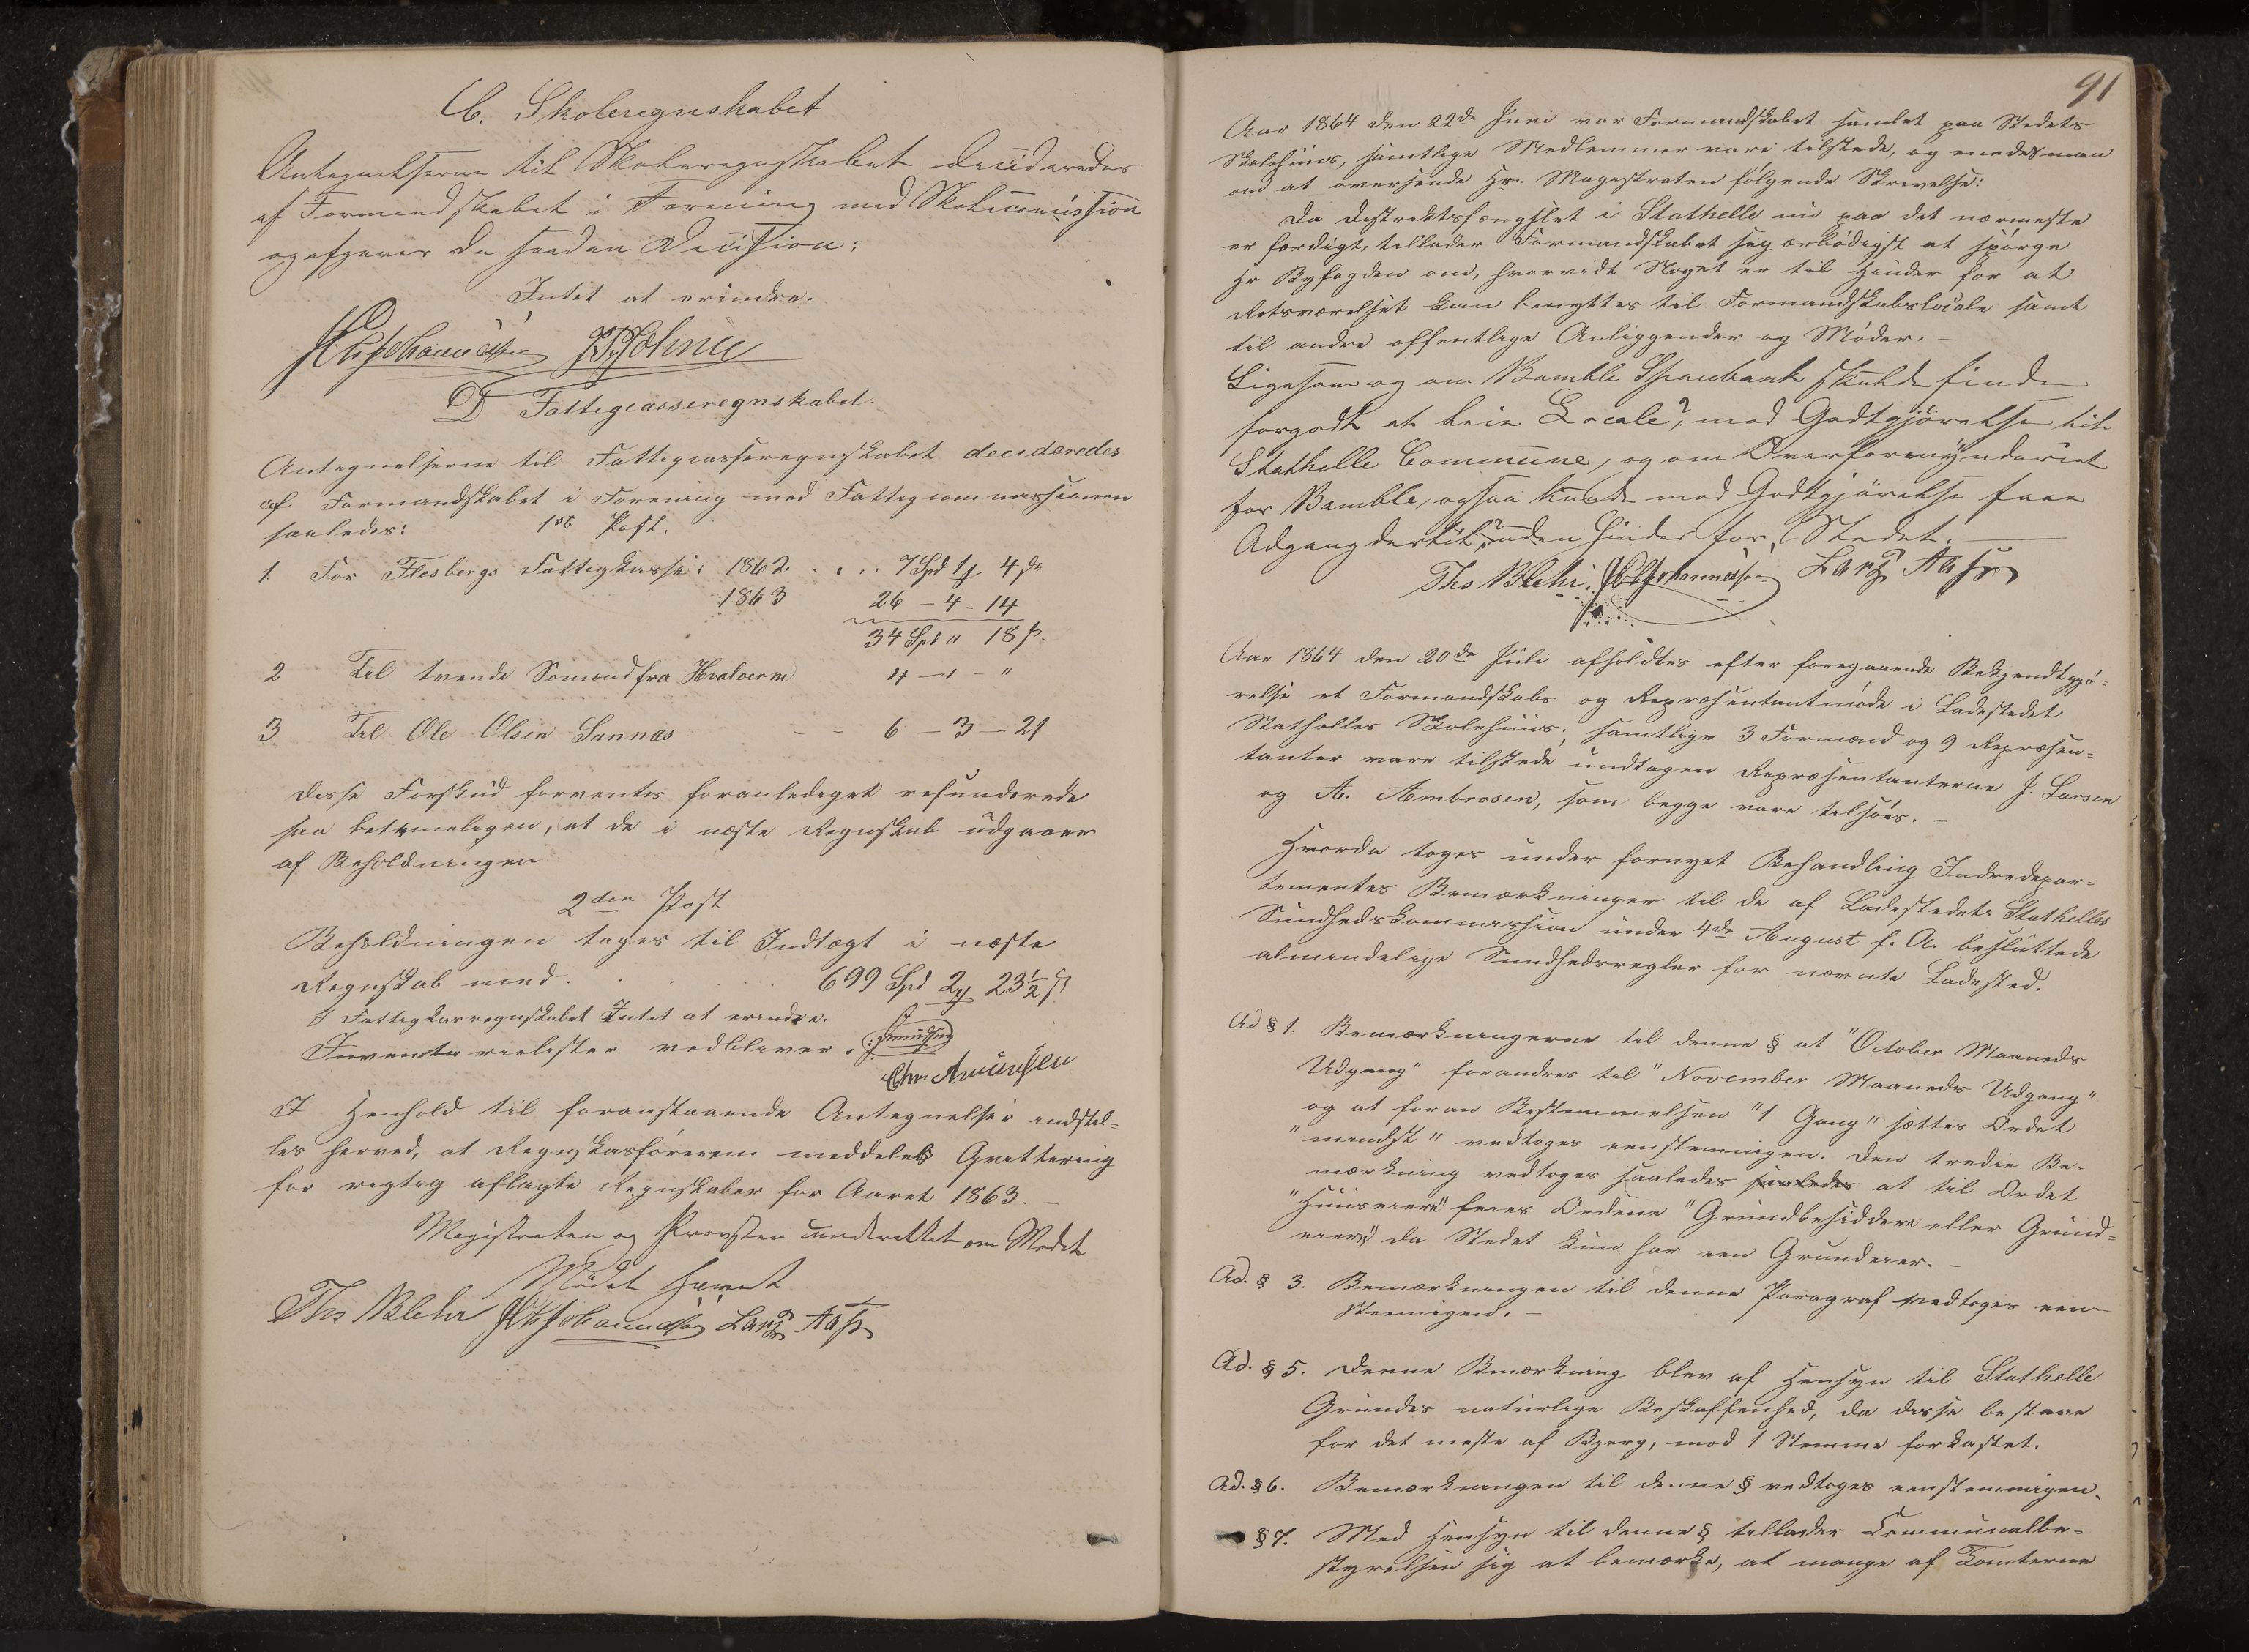 C. Skoleregnskabet
Antegnelserne til Skoleregnskabet decideredes
af Formandskabet i Forening med Skolecomission
og afgaves da saadan Decission:
Intet at erindre.
D Fattigcasseregnskabet.
Antegnelserne til Fattigcasseregnskabet decideredes
af Formandskabet i Forening med Fattigcommissionen
saaledes:
1ste Post.
1. For Flesbergs Fattigkasse: 1862 . . . 7 Spd 1 4 s
1863 26 - 4 - 14
34 Spd " 18 s.
2 Til trende Sömænd fra Hvaloerne 4 - 1 - "
3 Til Ole Olsen Sannæs - - 6 - 3 - 21
Disse Forskud forventes foranlediget refunderede
saa betimeligen, at de i næste Regnskab udgaaer
af Beholdningen
2den Post
Beholdningen tages til Indtægt i næste
Regnskab med . . . . . 699 Spd 2 23½ s
I Fattigkasregnskabet Intet at erindre.
Inventarielister vedbliver.
Chr. Amundsen
I Henhold til foranstaaende Antegnelser indstil=
les herved, at Regnskabsföreren meddeles Qvittering
for rigtig aflagte Regnskaber for Aaret 1863. -
Magistraten og Provsten underrettet om Mödet
Mödet hævet
Ths Blehr J Chr Johannessen Lars Aass
91
Aar 1864 den 22de Juni var Formandskabet samlet paa Stedets
Skolehuus, samtlige Medlemmer vare tilstede, og enedes man
om at oversende Hr. Magestraten fölgende Skrivelse:
Da Destriktsfængslet i Stathelle nu paa det nærmeste
er færdigt, tillader Formandskabet sig ærbödigst at spörge
Hr Byfogden om, hvorvidt Noget er til Hinder for at
Retsværelset kan benyttes til Formandskabslocale samt
til andre offentlige Anliggender og Möder. -
Ligesom og om Bamble Sparebank skulde finde
forgodt at leie Locale?, mod Godtgjörelse til
Stathelle Commune, og om Overformynderiet
for Bamble, ogsaa kunde mod Godtgjörelse faae
Adgang dertil, uden Hinder for Stedet. -
Ths Blehr. J Chr Johannessen Lars Aass
Aar 1864 den 20de Juli afholdtes efter foregaaende Bekjendtgjö=
relse et Formandskabs og Repræsentantmöde i Ladestedet
Stathelles Skolehuus; samtlige 3 Formænd og 9 Repræsen=
tanter vare tilstede undtagen Repræsentanterne J. Larsen
og A. Ambrosen, som begge vare tilsöes. -
Hvorda toges under fornyet Behandling Indredepar=
tementes Bemærkninger til de af Ladestedet Stathelles
Sundhedskommission under 4de August f. A. besluttede
almindelige Sundhedsregler for nævnte Ladested.
Ad § 1. Bemærkningerne til denne § at "October Maaneds
Udgang" forandres til "November Maaneds Udgang"
og at foran Bestemmelsen "1 Gang" sættes Ordet
"mindst" vedtoges eenstemmigen. Den tredie Be=
mærkning vedtoges saaledes saaledes at til Ordet
"Huuseiere" föies Ordene "Grundbesiddere eller Grund=
eiere", da Stedet kun har een Grundeier. -
Ad. § 3. Bemærkningen til denne Paragraf vedtoges een=
stemmigen. -
Ad. § 5. Denne Bmærkning blev af Hensyn til Stathelle
Grundes naturlige Beskaffenhed, da disse bestaae
for det meste af Bjerg, mod 1 Stemme forkastet.
Ad. § 6. Bemærkningen til denne § vedtoges eenstemmigen.
§ 7. Med Hensyn til denne § tillader Communalbe=
styrelsen sig at bemærke, at mange af Tomterne